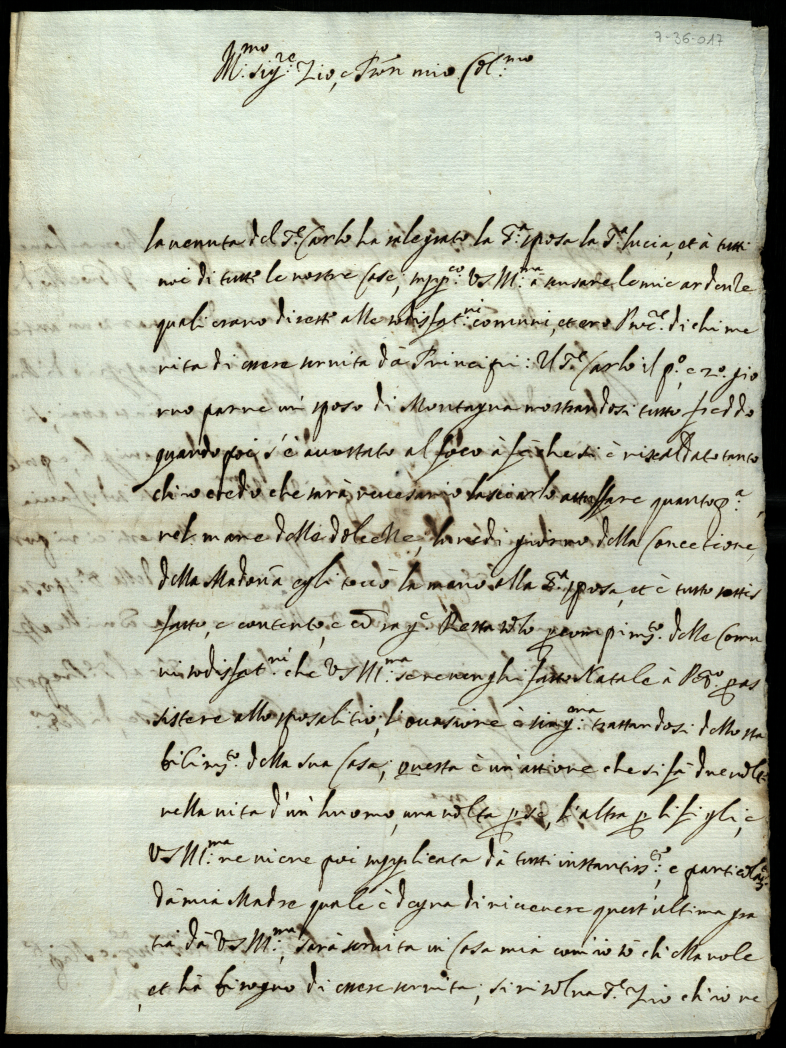 7-36-017
Ill:mo Sig:re Zio, e Pron mio Col:mo
la venuta del S.r Carlo ha ralegrato la S.a sposa la S.a lucia, et à tutti
noi di tutte le nostre Case; supp.co VS Ill:ma à scusare le mie ardenze
quali erano dirette alle sodisfat:ni comuni, et ero di chi me
rita di essere servita dà Principi: Il S.r Carlo il p.o, e 2.o gio
rno parve un sposo di Montagna mostrandosi tutto freddo
quando poi s'è accostato al foco à fè che si è riscaldato tanto
ch'io credo che sarà necessario lasciarlo attuffare quanto p.a
nel mare delle dolcezze, giorno della Concetione,
della Madonna egli toccò la mano alla S.a sposa, et è tutto sottis
fatto, e contento, e Resta solo p compim.to delle Comu
ni sodisfat:ni che VS Ill:ma se ne venghi fatto Natale à p as
sistere allo sposalitio, l'occasione è trattandosi dello sta
bilim.to della sua Casa; questa è un'attione che si fà due volte
nella vita d'un huomo, una volta p se, l'altra p li figli, e
VS Ill:ma ne viene poi supplicata dà tutti
dà mia Madre quale è degna di ricevere quest'ultima gra
tia dà VS Ill:ma, sarà servita in Casa mia com'io sò ch'Ella vole
et hà bisogno di essere servita; si risolva S.r Zio ch'io ne